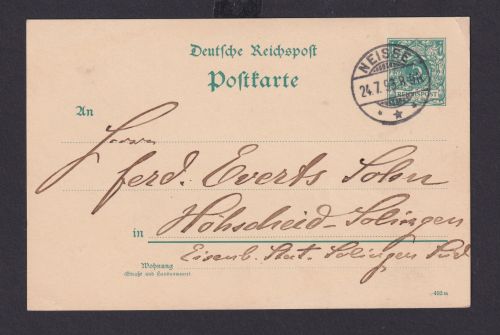 Deutsche Reichspost
Postkarte
NEISSE
24.7.9
An
Herrn
Ferd. Everts Sohn
in Höhscheid-Solingen
Eisenb. Stat. Solingen Süd
Wohnung
(Straße und Hausnummer)